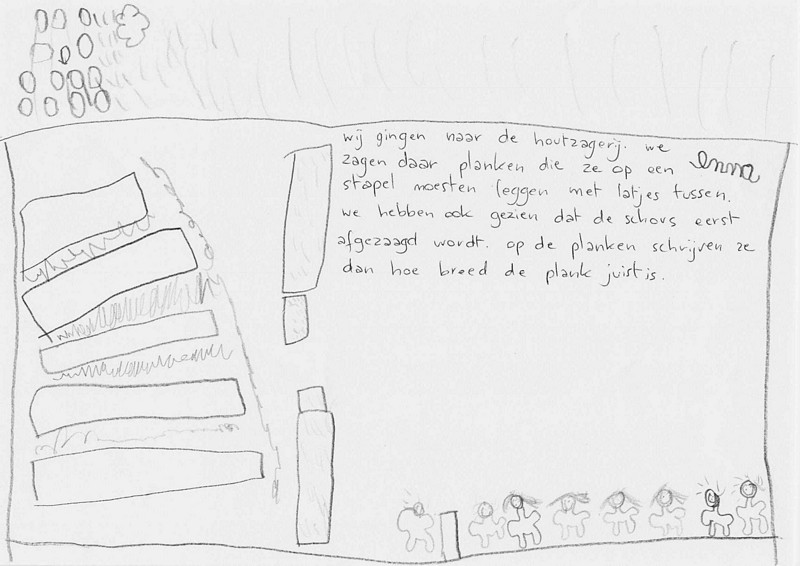 wij gingen naar de houtzagerij. we
zagen daar planken die ze op een
enna
stapel moesten leggen met latjes tussen.
we hebben ook gezien dat de schors eerst
afgezaagd wordt. op de planken schrijven ze
dan hoe breed de plank juist is.